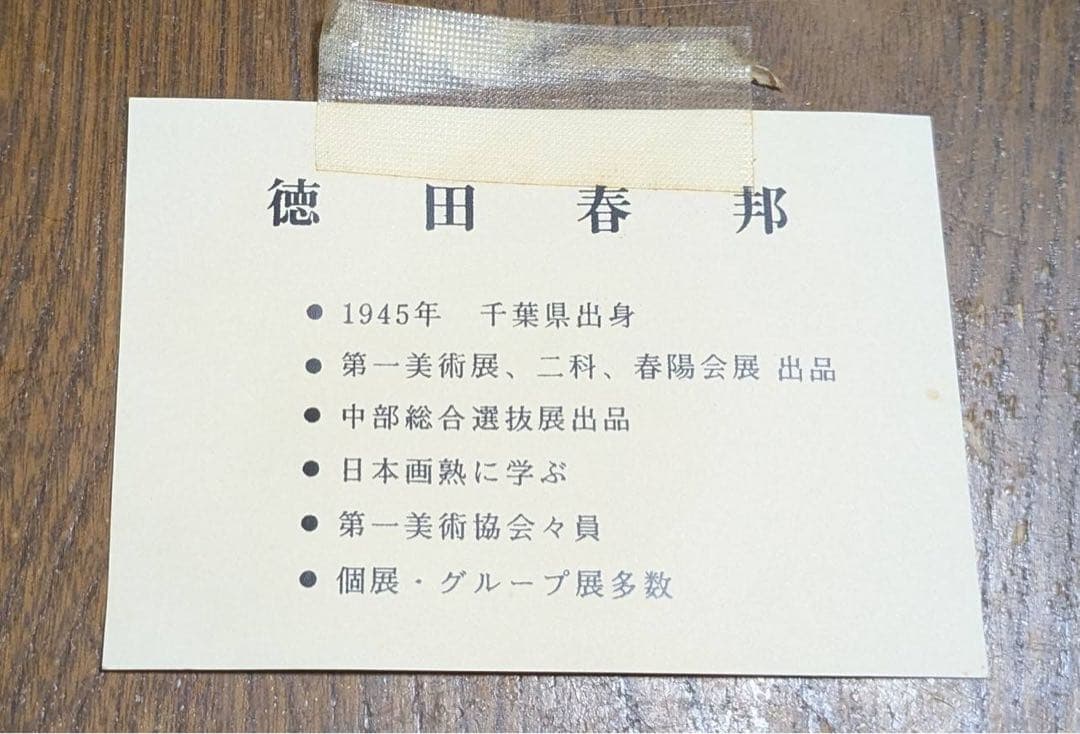 徳田春邦
● 1945年 千葉県出身
● 第一美術展、二科、春陽会展 出品
● 中部総合選抜展出品
● 日本画熟に学ぶ
● 第一美術協会々員
● 個展・グループ展多数